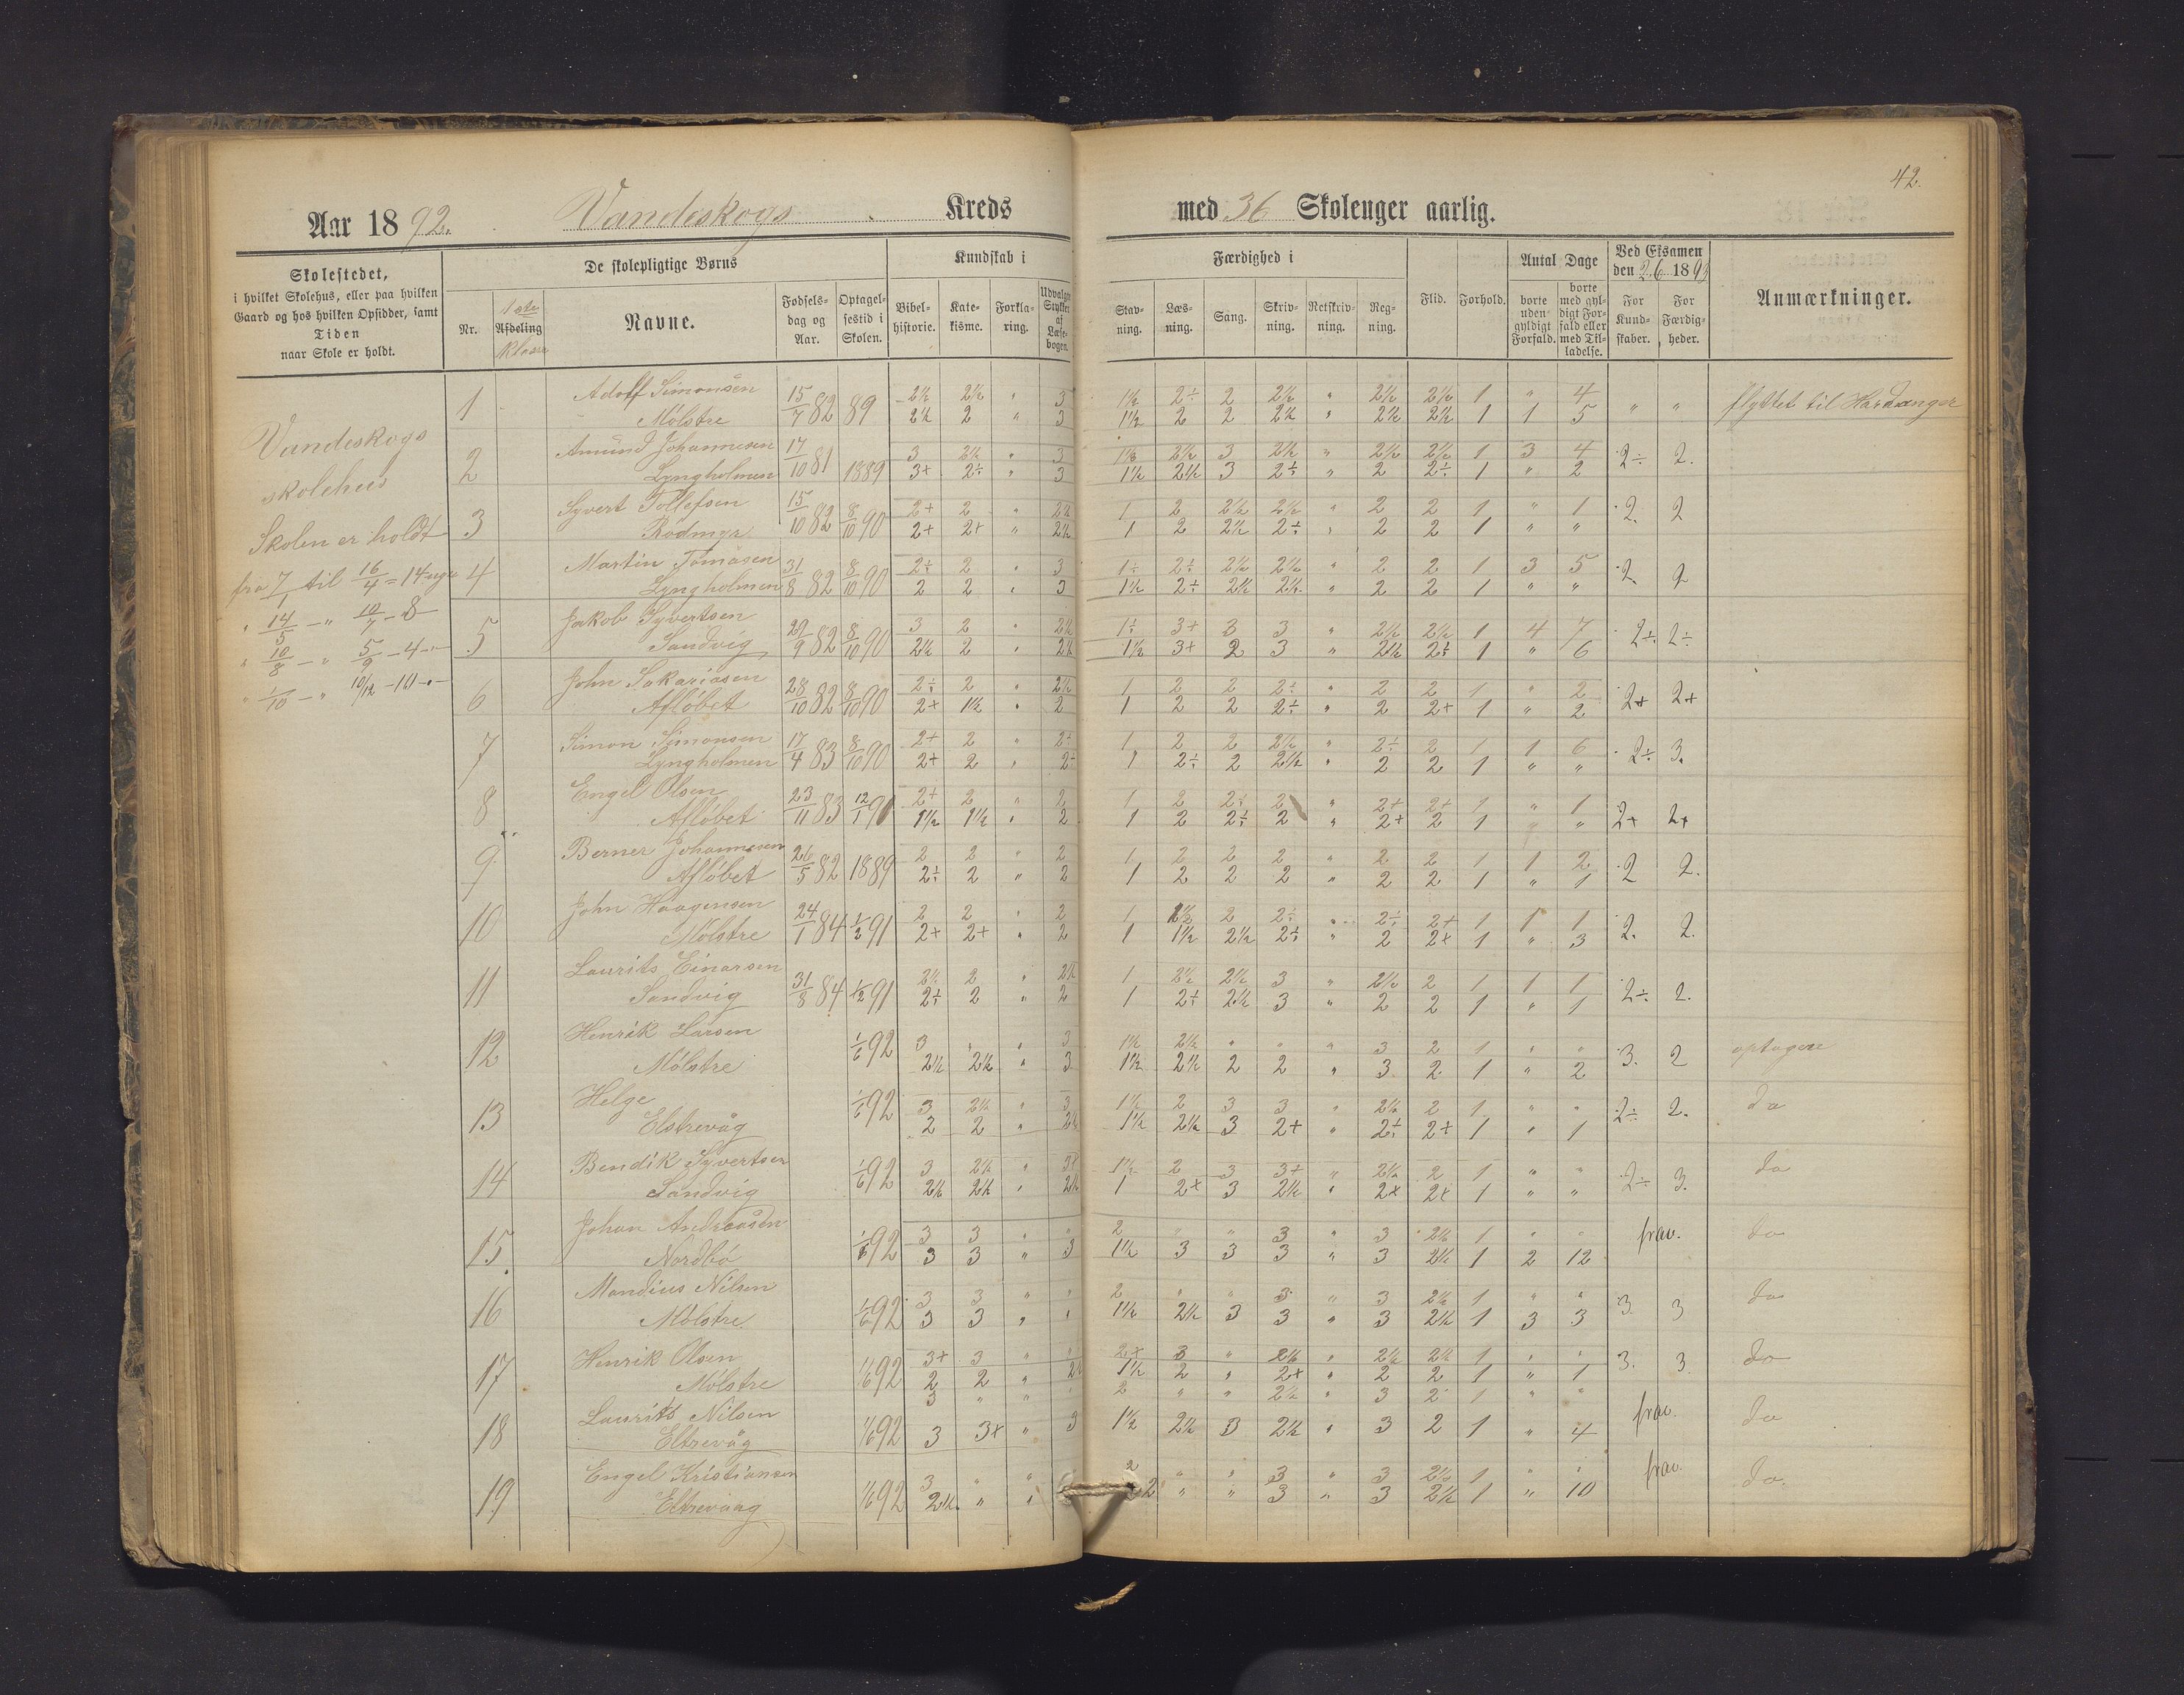 42.
Aar 1892. Vandeskogs Kreds med 36 Skoleuger aarlig.
Skolestedet, i hvilket Skolehus, eller paa hvilken Gaard og hos hvilken Opsidder, samt Tiden naar Skole er holdt.
De skolepligtige Børns
Nr.
1ste Afdeling Klasse
Navne.
Fødsels- dag og Aar.
Optagel- sestid i Skolen.
Kundskab i
Bibel- historie.
Kate- kisme.
Forkla- ring.
Udvalgte Stykker af Læse- bogen.
Færdighed i
Stav- ning.
Læs- ning.
Sang.
Skriv- ning.
Retskriv- ning.
Reg- ning.
Flid.
Forhold.
Antal Dage
borte uden gyldigt Forfald.
borte med gyl- digt For- fald eller med Til- ladelse.
Ved Eksamen den 2/6 1893
For Kund- skaber.
For Færdig- heder.
Anmærkninger.
Vandeskogs
skolehus
Skolen er holdt
fra 7/1 til 16/4 = 14 uger
" 14/5 - " 10/7 - 8 -
" 10/8 - " 5/9 - 4 - " -
" 1/10 - " 10/12 - 10 - " -
1 Adolf Simonsen 15/7 82 89 2½ 2½ " 3 1½ 2÷ 2 2½ " 2½ 2½ 1 " 4 " " flyttet til Hardanger
Mølstre 2½ 2 " 3 1½ 2 2 2½ " 2½ 2½ 1 1 5
2 Amund Johannesen 17/10 81 1889 3 2½ " 3 1½ 2½ 3 2½ " 2½ 2½ 1 3 4 2÷ 2.
Lyngholmen 3+ 2÷ " 3 1½ 2½ 3 2÷ " 2 2÷ 1 " 2
3 Syvert Tollefsen 15/10 82 8/10 90 2+ 2 " 2½ 1 2 2½ 2½ " 2 2 1 " 1 2. 2
Rødmyr 2+ 2+ " 2½ 1 2 2½ 2÷ " 2 2 1 " "
4 Martin Tomasen 31/8 82 8/10 90 2÷ 2 " 3 1÷ 2÷ 2½ 2½ " 2 2 1 3 5 2. 2
Lyngholmen 2 2 " 3 1½ 2÷ 2½ 2½ " 2 2 1 " "
5 Jakob Syvertsen 29/9 82 8/10 90 3 2 " 2½ 1÷ 3+ 3 3 " 2½ 2½ 1 4 7 2÷ 2÷
Sandvig 2½ 2 " 2½ 1½ 3+ 2 3 " 2½ 2÷ 1 " 6
6 John Sakariasen 28/10 82 8/10 90 2÷ 2 " 2½ 1 2 2 2÷ " 2 2 1 " 2 2+ 2+
Afløbet 2+ 1½ " 2 1 2 2 2÷ " 2 2+ 1 " 2
7 Simon Simonsen 17/4 83 8/10 90 2+ 2 " 2÷ 1 2 2 2½ " 2÷ 2 1 1 6 2÷ 3.
Lyngholmen 2+ 2 " 2÷ 1 2÷ 2 2½ " 2 2 1 " "
8 Engel Olsen 23/11 83 12/1 91 2+ 2 " 2 1 2 2÷ 2 " 2+ 2+ 1 " 1 2+ 2+
Afløbet 1½ 1½ " 2 1 2 2÷ 2 " 2+ 2 1 "
9. Berner Johannesen 26/5 82 1889 2 2 " 2 1 2 2 2 " 2 2 1 1 2 2 2.
Afløbet 2÷ 2 " 2 1 2 2 2 " 2 2 1 " 1
10 John Haagensen 24/1 84 1/2 91 2 2 " 2 1 1½ 2 2÷ " 2÷ 2+ 1 1 1 2. 2.
Mølstre 2+ 2+ " 2 1 1½ 2½ 2÷ " 2 2+ 1 " 3
11 Laurits Einarsen 31/8 84 1/2 91 2½ 2 " 2½ 1 2½ 2½ 3 " 2½ 2 1 1 1 2÷ 2.
Sandvig 2÷ 2 " 2 1 2÷ 2½ 3 " 2 2 1 " 1
12 Henrik Larsen 1/6 92 3 " " 3 1½ 2½ " " " 3 2 1 " " 3. 2 optagen
Mølstre 2½ 2½ " 3 1½ 2½ 2 2 " 3 2 1 " 2
13 Helge 1/6 92 3 2½ " 3 1½ 2 3 3 " 2½ 2 1 " " 2÷ 2. do
Elstrevåg 2 2 " 2½ 1½ 2½ 3 2+ " 2÷ 2+ 1 " 1
14 Bendik Syvertsen 1/6 92 3 2½ " 3+ 1½ 2 3 3+ " 2½ 2 1 " " 2÷ 3. do
Sandvig 2½ 2½ " 2½ 1 2+ 3 2½ " 2+ 2+ 1 " "
15. Johan Andreasen 1/6 92 3 3 " " 2 " " 3 " 3 2½ 1 " " frav. do
Nordbø 3 3 " 3 1½ 3 3 3 " 3 2½ 1 2 12
16 Mandius Nilsen 1/6 92 3 3 " " 2 " " 3 " 3 2½ 1 " " 3. 3 do
Mølstre 3 3 " " 1½ 2½ 3 3 " 3 2½ 1 3 3
17 Henrik Olsen 1/6 92 3+ 3 " " 2+ 3 " 2½ " 2½ 2½ 1 " " 3. 3 do
Mølstre 2 2 " 2½ 1½ 2 " 2+ " 2 2 1 " 1
18 Laurits Nilsen 1/6 92 3 " " " 2 " " 2½ " 3 2 1 " " frav. do
Eltrevåg 3 3+ " 3 1½ 2½ 3 2½ " 3 2 1 " 4
19 Engel Kristiansen 1/6 92 3 " " 2 " " 3 " 3 2½ 1 " " frav. do.
Eltrevaag 2½ " " 2 " " 3 " 3 2½ 1 " 10